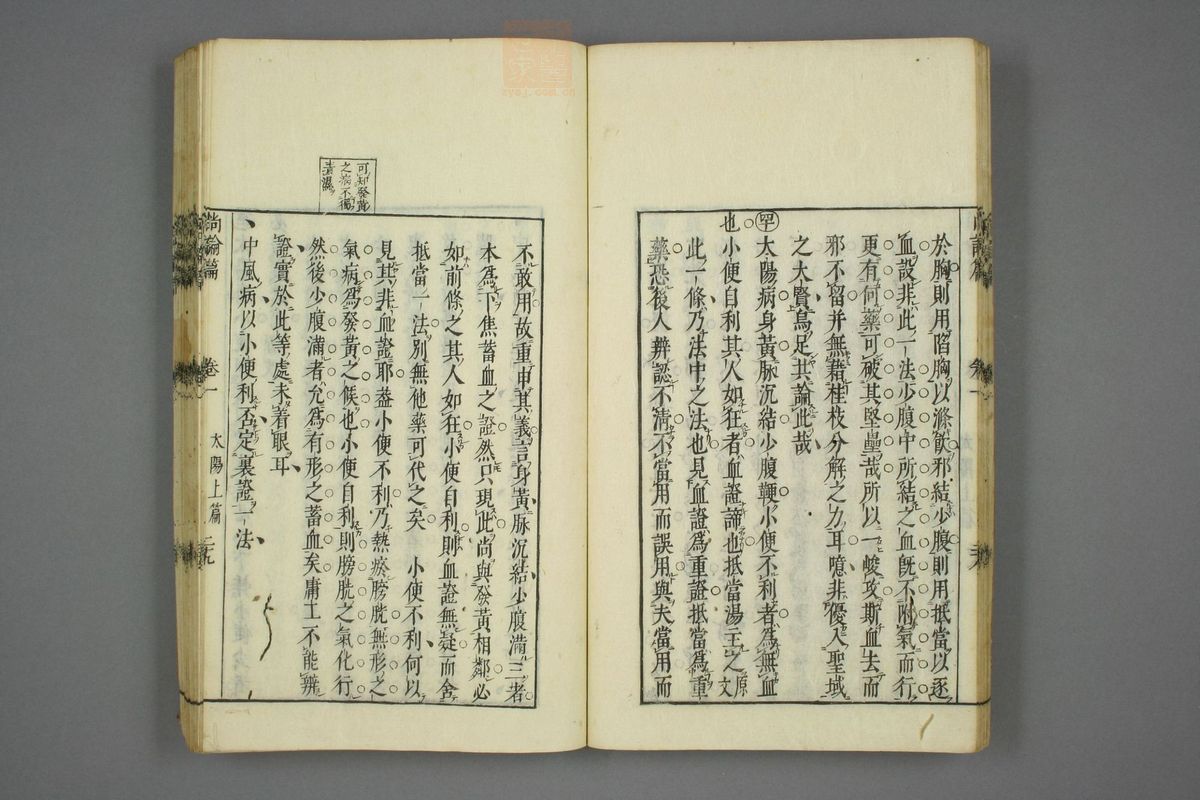 於胸則用陷胸以滌飲邪結少腹則用抵當以逐
血設非此一法少腹中所結之血既不附氣而行
更有何藥可破其堅壘哉所以一峻攻斯血去而
邪不留并無藉桂枝分解之力耳噫非優入聖域
之大賢烏足共論此哉
太陽病身黃脉沉結少腹鞕小便不利者為無血
也小便自利其人如狂者血證諦也抵當湯主之原文
此一條乃法中之法也見血證為重證抵當為重
藥恐後人辨認不清不當用而誤用與夫當用而
可知發黃
之病不獨
不敢用故重申其義言身黃脉沉結少腹滿三者
本為下焦蓄血之證然只現此尚與發黃相鄰必
如前條之其人如狂小便自利則血證無疑而舍
抵當一法別無他藥可代之矣 小便不利何以
見其非血證耶葢小便不利乃熱瘀膀胱無形之
氣病為發黃之候也小便自利則膀胱之氣化行
然後少腹滿者允為有形之蓄血矣庸工不能辨
證實於此等處未着眼耳
中風病以小便利否定裏證一法
尚論篇 卷一 太陽上篇